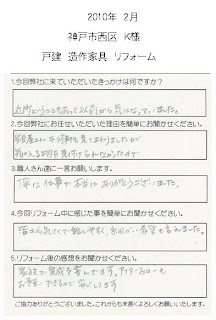 2010年 2月
神戸市西区 K様
戸建 造作家具 リフォーム
1.今回弊社に来ていただいたきっかけは何ですか?
近所ということもあって以前から気になっていました。
2.今回弊社にお任せいただいた理由を簡単にお聞かせください。
家具屋さんを何軒も見てまわりましたが
気に入るものを見付けられなかったので
3.職人さん達に一言お願いします。
丁寧な仕事で本当にありがとうございました。
4.今回リフォーム中に感じた事を簡単にお聞かせください。
皆さん気さくで話しやすく、
5.リフォーム後の感想をお聞かせください。
家族で完成を喜んでます。アフターフォローも
お願いできるので安心してます
ご協力ありがとうございました。これからも末長くよろしくお願いいたします。